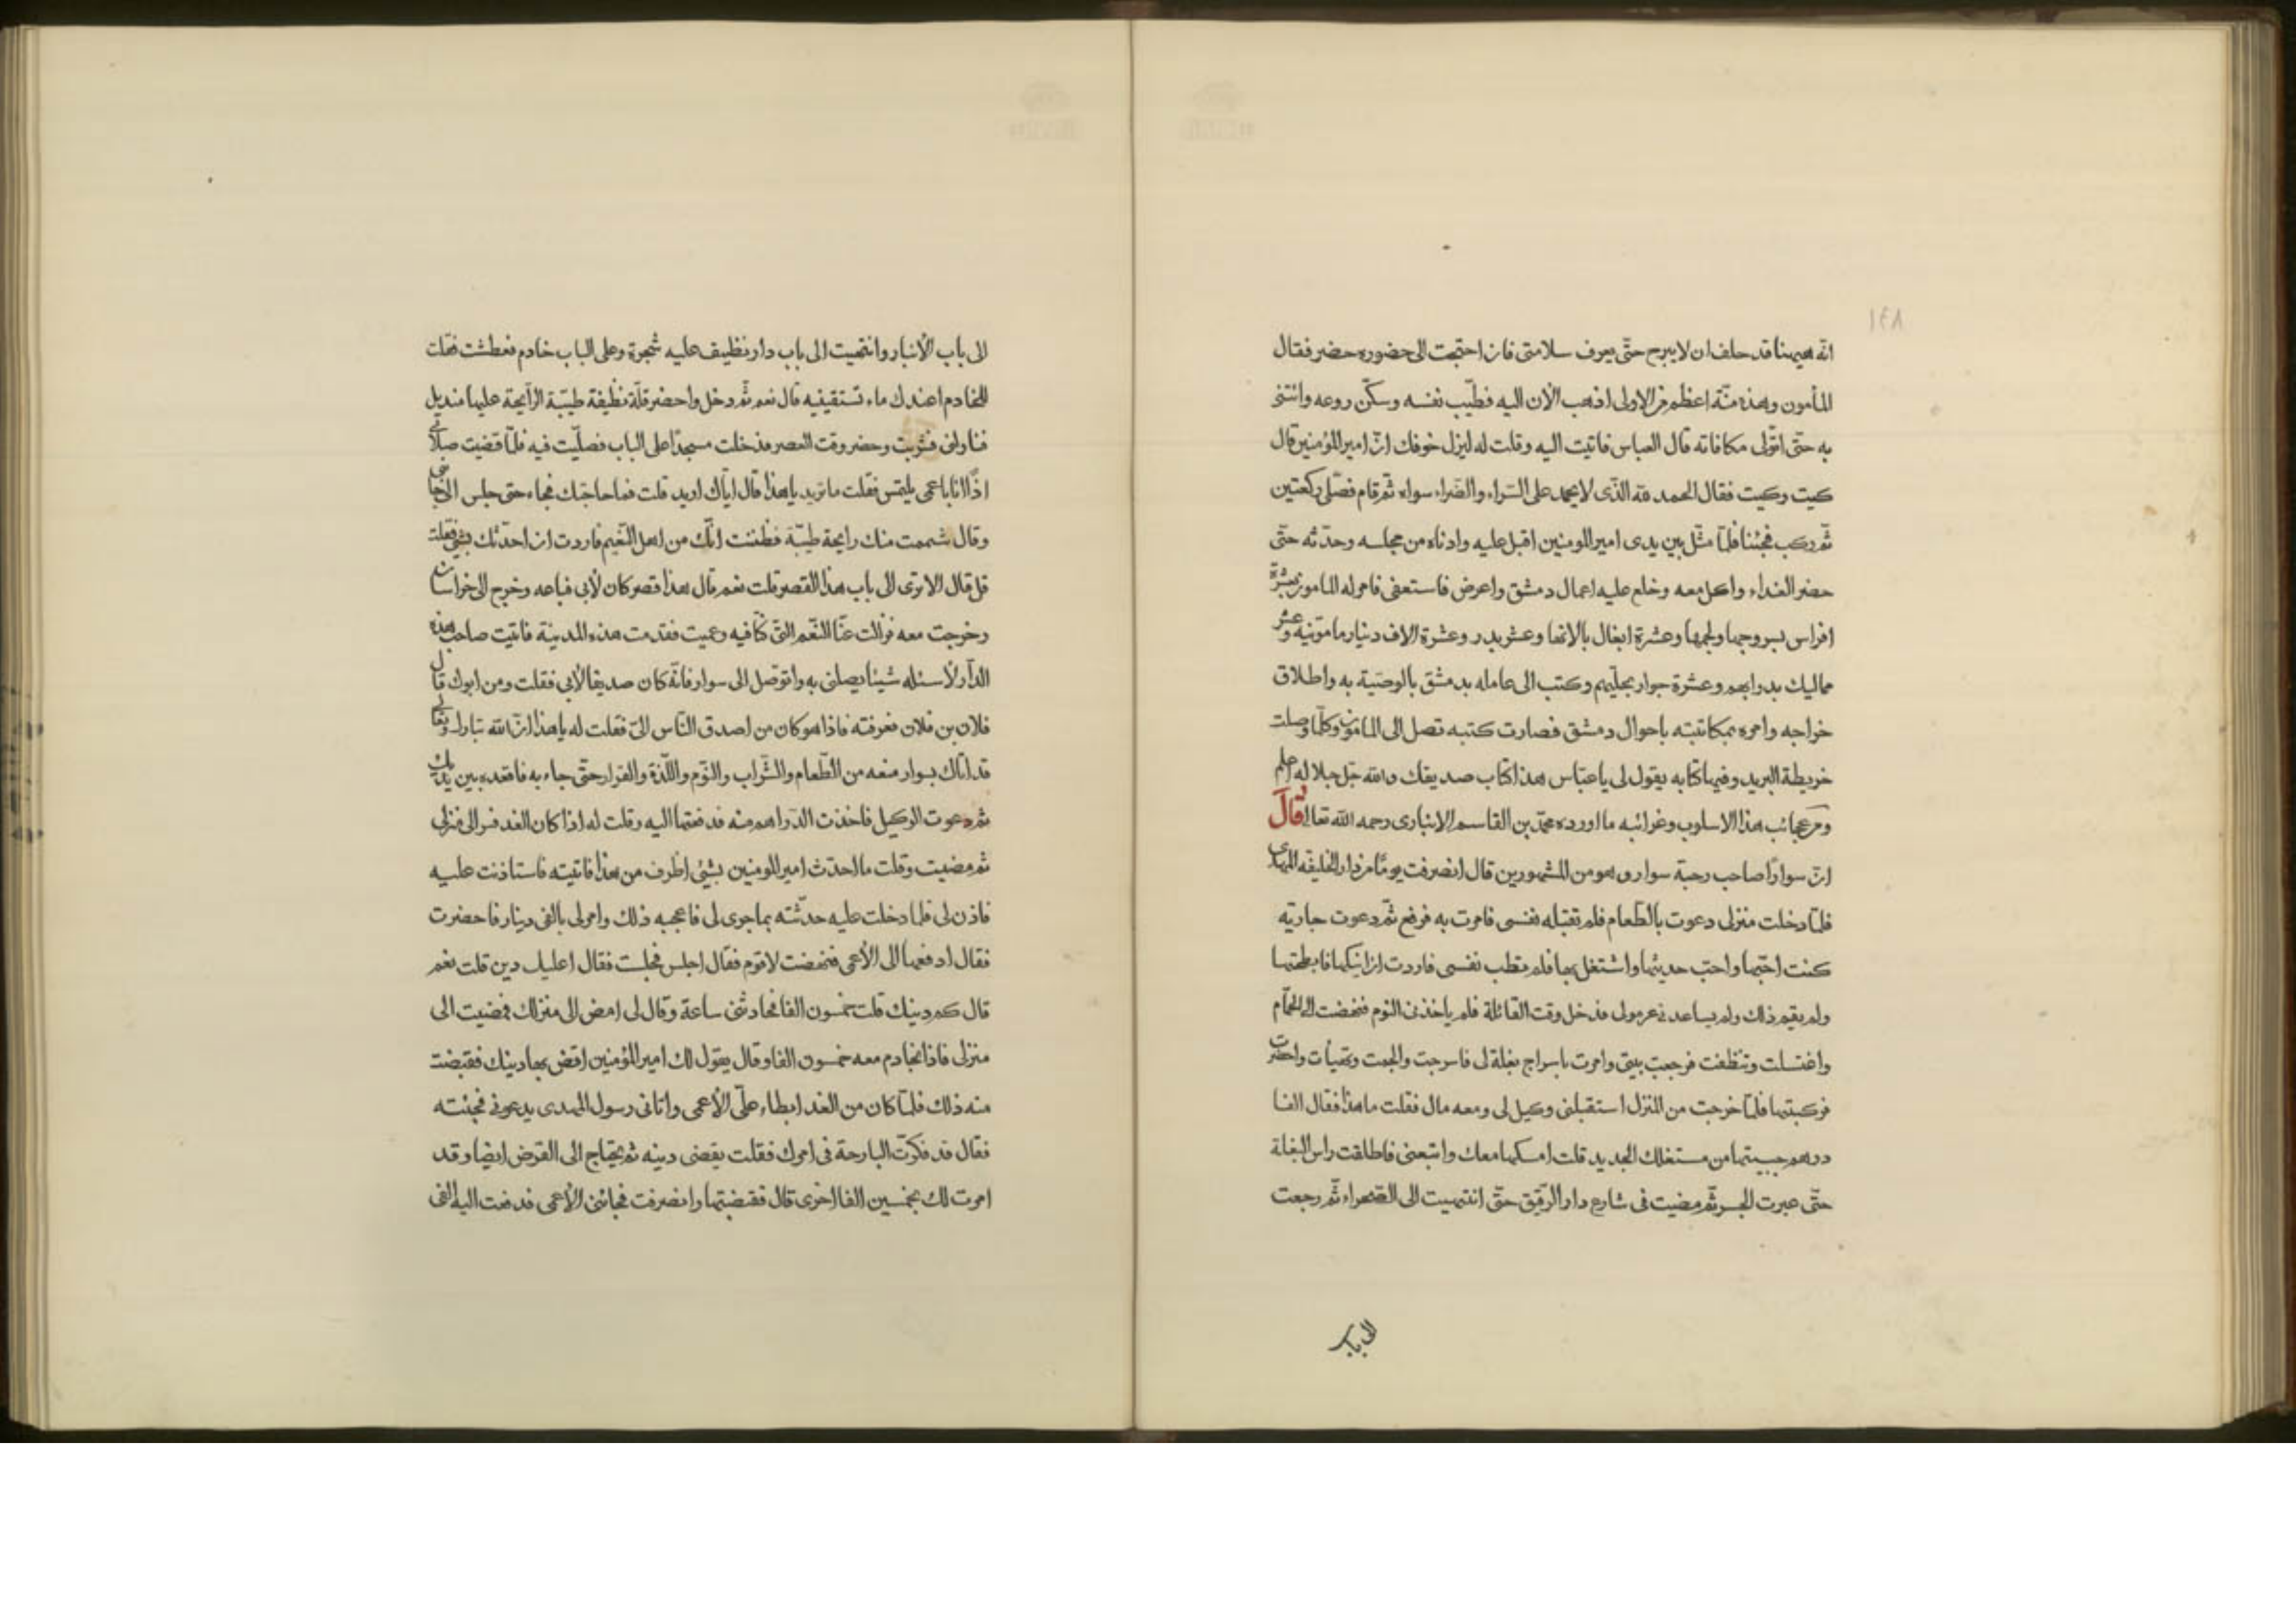 ١٤٨
انّه هيهنا قد حلف ان لا يبرح حتّى يعرف سلامتى فان احتجت الى حضوره حضر فقال
المأمون وهذه منّة اعظم من الاولى اذهب الآن اليه فطيّب نفسه وسكّن روعه وائتنى
به حتّى اتولّى مكافاته قال العباس فاتيت اليه وقلت له ليزل خوفك انّ امير المؤمنين قال
كيت وكيت فقال الحمد لله الذّى لا يحمد على السّراء والضراء سواه ثم قام فصلّى ركعتين
ثمّ ركب فجئنا فلمّا مثّل بين يدى امير المومنين اقبل عليه وادناه من مجلسه وحدّثه حتّى
حضر الغداء واكل معه وخلع عليه اعمال دمشق واعرض فاستعفى فامر له المامون بعشرة
افراس بسروجها ولجمها وعشرة ابغال بالاتها وعشر بدر وعشرة الاف دينار مامونيه وعشر
مماليك بدوابهم وعشرة جوار بحليهم وكتب الى عامله بدمشق بالوصيّة به واطلاق
خراجه وامره بمكاتبته باحوال دمشق فصارت كتبه تصل الى المامون وكلّما وصلت
خريطة البريد وفيها كتابه يقول لى يا عبّاس هذا كتاب صديقك والله جلّ جلاله اعلم
ومن عجائب هذا الاسلوب وغرائبه ما اورده محمّد بن القاسم الانبارى رحمه الله تعالى قال
انّ سوارًا صاحب رحبة سوار وهو من المشهورين قال انصرفت يومًا من دار الخليفه المهدى
فلمّا دخلت منزلى دعوت بالطّعام فلم تقبله نفسى فامرت به فرفع ثمّ دعوت جاريه
كنت احبّها واحبّ حديثها واشتغل بها فلم تطب نفسى فاردت ان انيكها فابطحتها
ولم يقم ذلك ولم يساعدنى عرمولى فدخل وقت القائلة فلم ياخذنى النوم فنهضت الى الحمّام
واغتسلت وتنظفت فرجعت بيتى وامرت باسراج بغلة لى فاسرجت والجمت وتهيأت واحضرت
فركبتها فلمّا خرجت من المنزل استقبلنى وكيل لى ومعه مال فقلت ما هذا فقال الفا
درهم جبيتها من مستغلك الجديد قلت امسكها معك واتبعنى فاطلقت راس البغلة
حتّى عبرت الجسر ثم مضيت فى شارع دار الرّقيق حتّى انتهيت الى الصّحراء ثمّ رجعت
الى باب
الى باب الأنبار وانتهيت الى باب دار نظيف عليه شجرة وعلى الباب خادم فعطشت فقلت
للخادم اعندك ماء تستقينيه قال نعم ثمّ دخل واحضر قلّة نظيفة طيّبة الرّايحة عليها منديل
فناولنى فشربت وحضر وقت العصر فدخلت مسجدًا على الباب فصلّيت فيه فلمّا قضيت صلاتى
اذًا انا باعمى يلتمس فقلت ما تريد يا هذا قال ايّاك اريد قلت فما حاجتك فجاء حتى جلس الى جانبى
وقال شممت منك رايحة طيّبة فظننت انّك من اهل النّعيم فاردت ان احدّثك بشئ فقلت
قل قال الا ترى الى باب هذا القصر قلت نعم قال هذا قصر كان لأبى فباعه وخرج الى خراسان
وخرجت معه فزالت عنّا النّعم التى كنّا فيه وعميت فقدمت هذه المدينة فاتيت صاحب هذه
الدّار لأسئله شيئًا يصلنى به واتوصّل الى سوار فانّه كان صديقا لأبى فقلت ومن ابوك قال
فلان بن فلان فعرفته فاذا هو كان من اصدق النّاس الىّ فقلت له يا هذا انّ الله تبارك وتعالى
قد اتاك بسوار منعه من الطّعام والشّراب والنّوم واللّذة والقرار حتّى جاء به فاقعده بين يديك
ثم دعوت الوكيل فاخذت الدّراهم منه فدفعتها اليه وقلت له اذا كان الغد فسر الى منزلى
ثم مضيت وقلت ما احدّث امير المومنين بشئ اظرف من هذا فاتيته فاستاذنت عليه
فاذن لى فلما دخلت عليه حدّثته بما جرى لى فاعجبه ذلك وامر لى بالفى دينار فاحضرت
فقال ادفعها الى الأعمى فنهضت لاقوم فقال اجلس فجلست فقال اعليك دين قلت نعم
قال كم دينك قلت خمسون الفا فحادثنى ساعة وقال لى امض الى منزلك فمضيت الى
منزلى فاذا بخادم معه خمسون الفا وقال يقول لك امير المؤمنين اقض بها دينك فقبضت
منه ذلك فلمّا كان من الغد ابطاء علىّ الأعمى واتانى رسول المهدى يدعونى فجئته
فقال قد فكرّت البارحة فى امرك فقلت يقضى دينه ثم يحتاج الى القرض ايضا وقد
امرت لك بخمسين الفا اخرى قال فقبضتها وانصرفت فجائنى الأعمى فدفعت اليه الفى